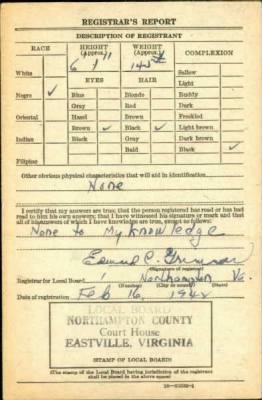 REGISTRAR'S REPORT
DESCRIPTION OF REGISTRANT
RACE HEIGHT (Approx.) WEIGHT (Approx.) COMPLEXION
6' 1" 145
White Sallow
EYES HAIR Light
Negro ✓ Blue Blonde Ruddy
Gray Red Dark
Oriental Hazel Brown Freckled
Brown ✓ Black ✓ Light brown
Indian Black Gray Dark brown
Bald Black ✓
Filipino
Other obvious physical characteristics that will aid in identification
None
I certify that my answers are true; that the person registered has read or has had
read to him his own answers; that I have witnessed his signature or mark and that
all of his answers of which I have knowledge are true, except as follows:
None to My Knowledge
Edward C.
(Signature of registrar)
Registrar for Local Board 1 Northampton Va.
(Number) (City or county) (State)
Date of registration Feb 16, 1942
LOCAL BOARD
NORTHAMPTON COUNTY
Court House
EASTVILLE, VIRGINIA
(STAMP OF LOCAL BOARD)
(The stamp of the Local Board having jurisdiction of the registrant
shall be placed in the above space.)